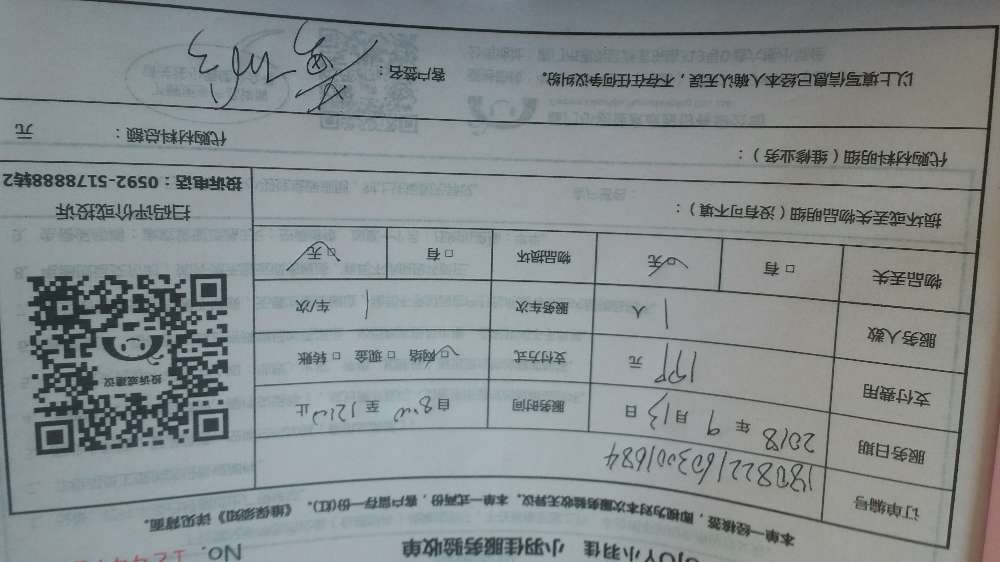 小羽佳 小羽佳服务验收单 No.
本单一经核签，即视为对本次服务验收无异议。本单一式两份，客户留存一份(红)。《维保须知》详见背面。
订单编号 1808221603001684
服务日期 2018 年 9 月 13 日 服务时间 自 8:00 至 12:00 止
支付费用 198 元 支付方式 □ 网络 □ 现金 □ 转账
服务人数 1 人 服务车次 1 车/次
物品丢失 □ 有 □ 无 物品损坏 □ 有 □ 无
投诉或建议
扫码评价或投诉
投诉电话：0592-5178888转2
损坏或丢失物品明细（没有可不填）：
代购材料明细（维修业务）： 代购材料总额： 元
以上填写信息已经本人确认无误，不存在任何争议纠纷。 客户签名：